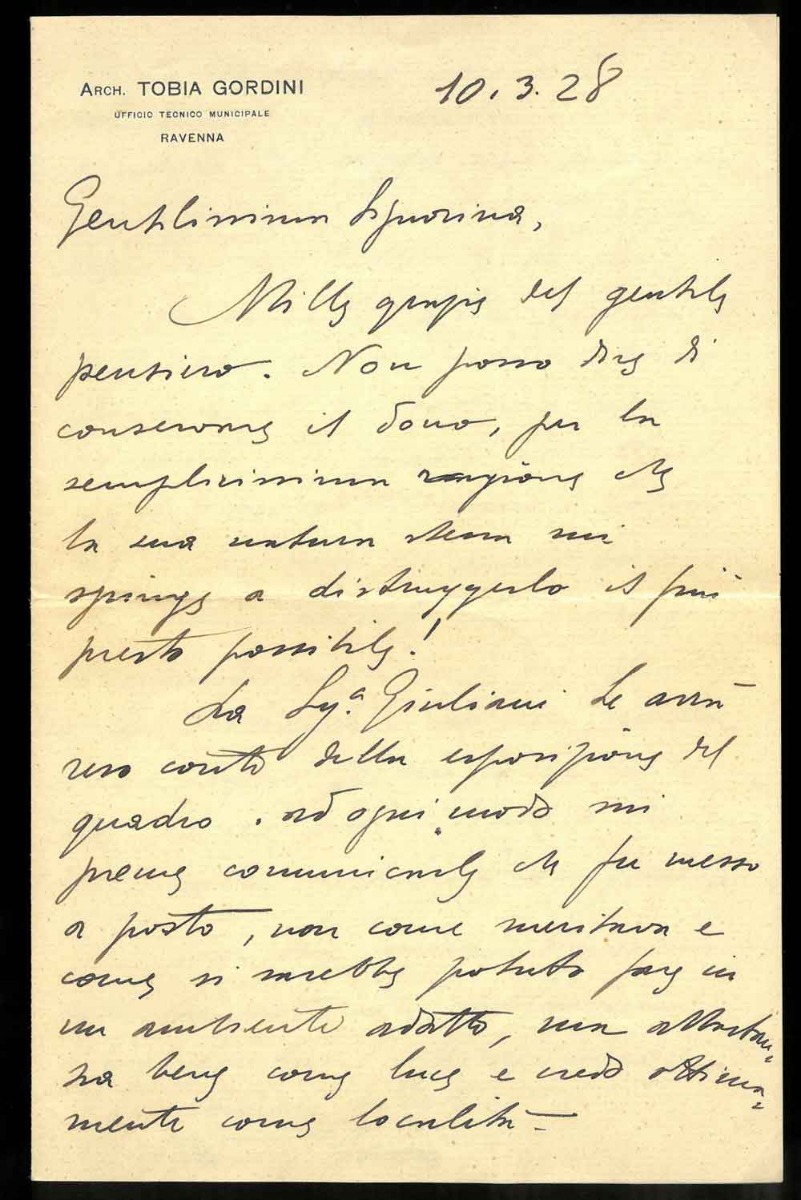 ARCH. TOBIA GORDINI
UFFICIO TECNICO MUNICIPALE
RAVENNA
10.3.28
Gentilissima Signorina,
Mille grazie del gentile
pensiero. Non posso dire di
conservare il dono, per la
semplicissima ragione che
la sua natura stessa mi
spinge a distruggerlo il più
presto possibile!
La Sig.a Giuliani Le avrà
reso conto della esposizione del
quadro. ad ogni modo mi
preme comunicarle che fu messo
a posto, non come meritava e
come si sarebbe potuto fare in
un ambiente adatto, ma abbastan=
za bene come luce e credo ottima=
mente come località -